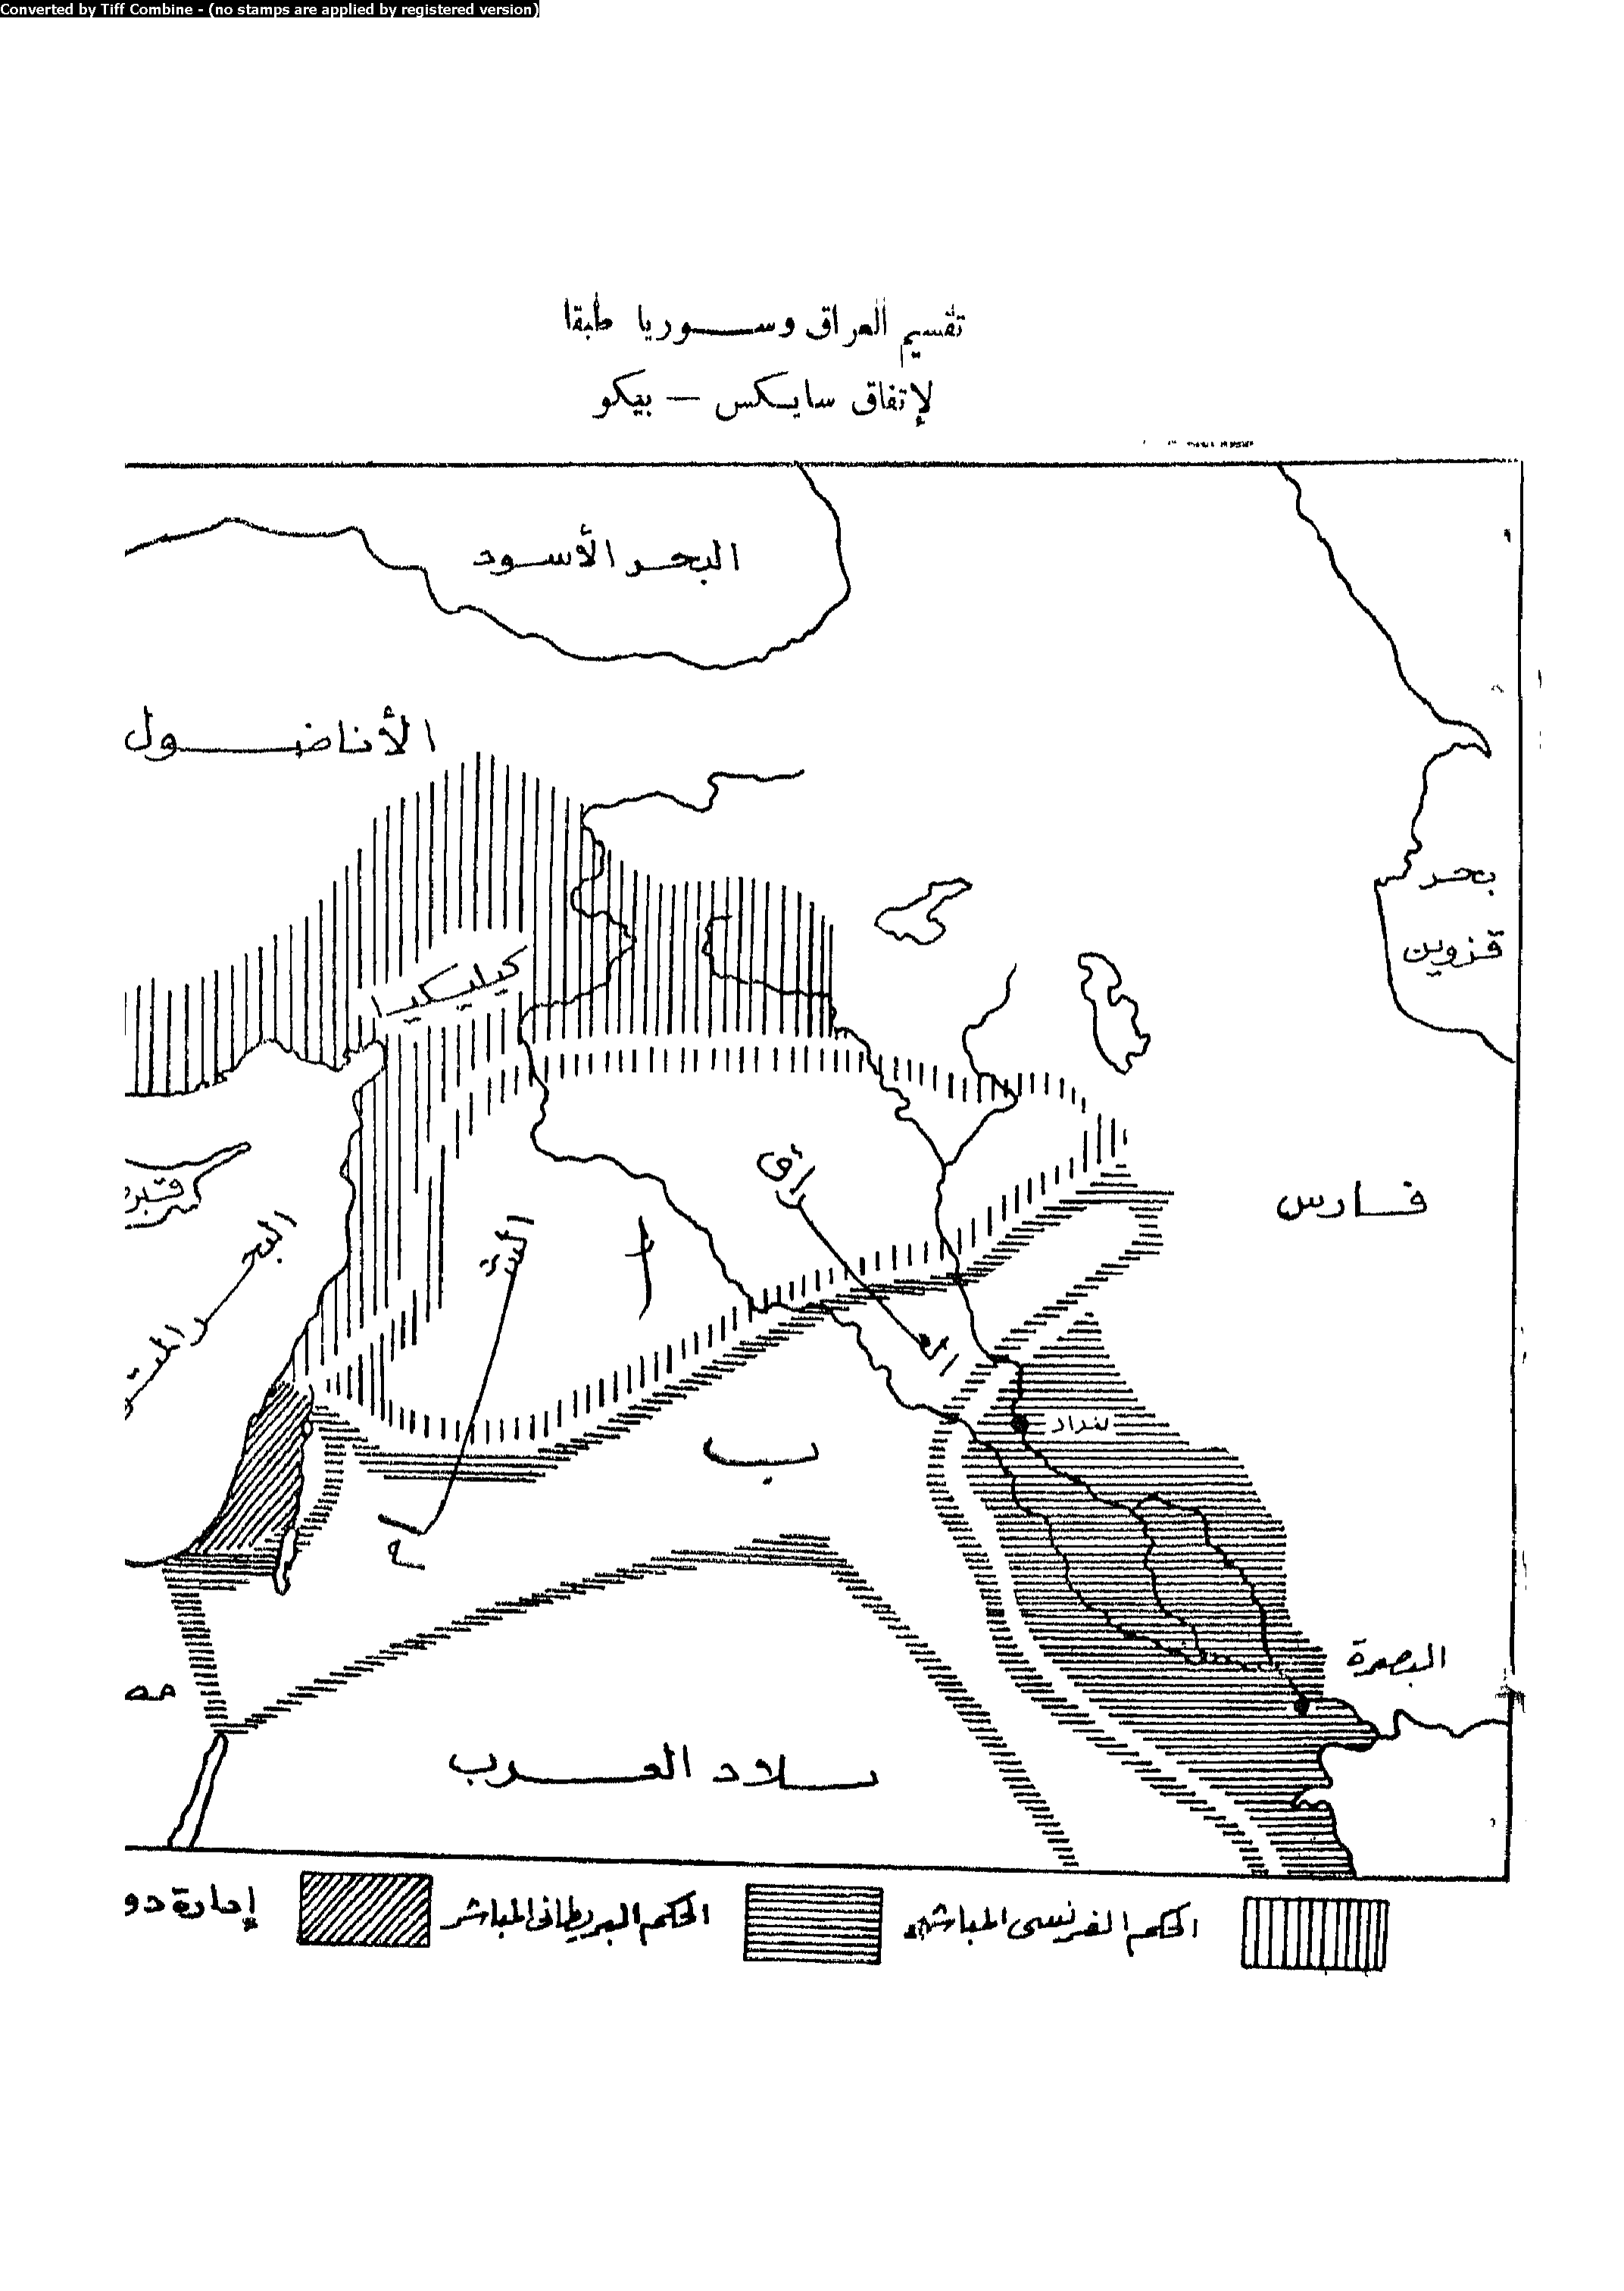 Converted by Tiff Combine - (no stamps are applied by registered version)
تقسيم العراق وسوريا طبقا
لإتفاق سايكس – بيكو
البحر الأسود
الأناضول
بحر
قزوين
كيليكيا
فارس
أ
العراق
ب
بغداد
البصرة
بلاد العرب
الحكم الفرنسى المباشر
الحكم البريطانى المباشر
إدارة دو